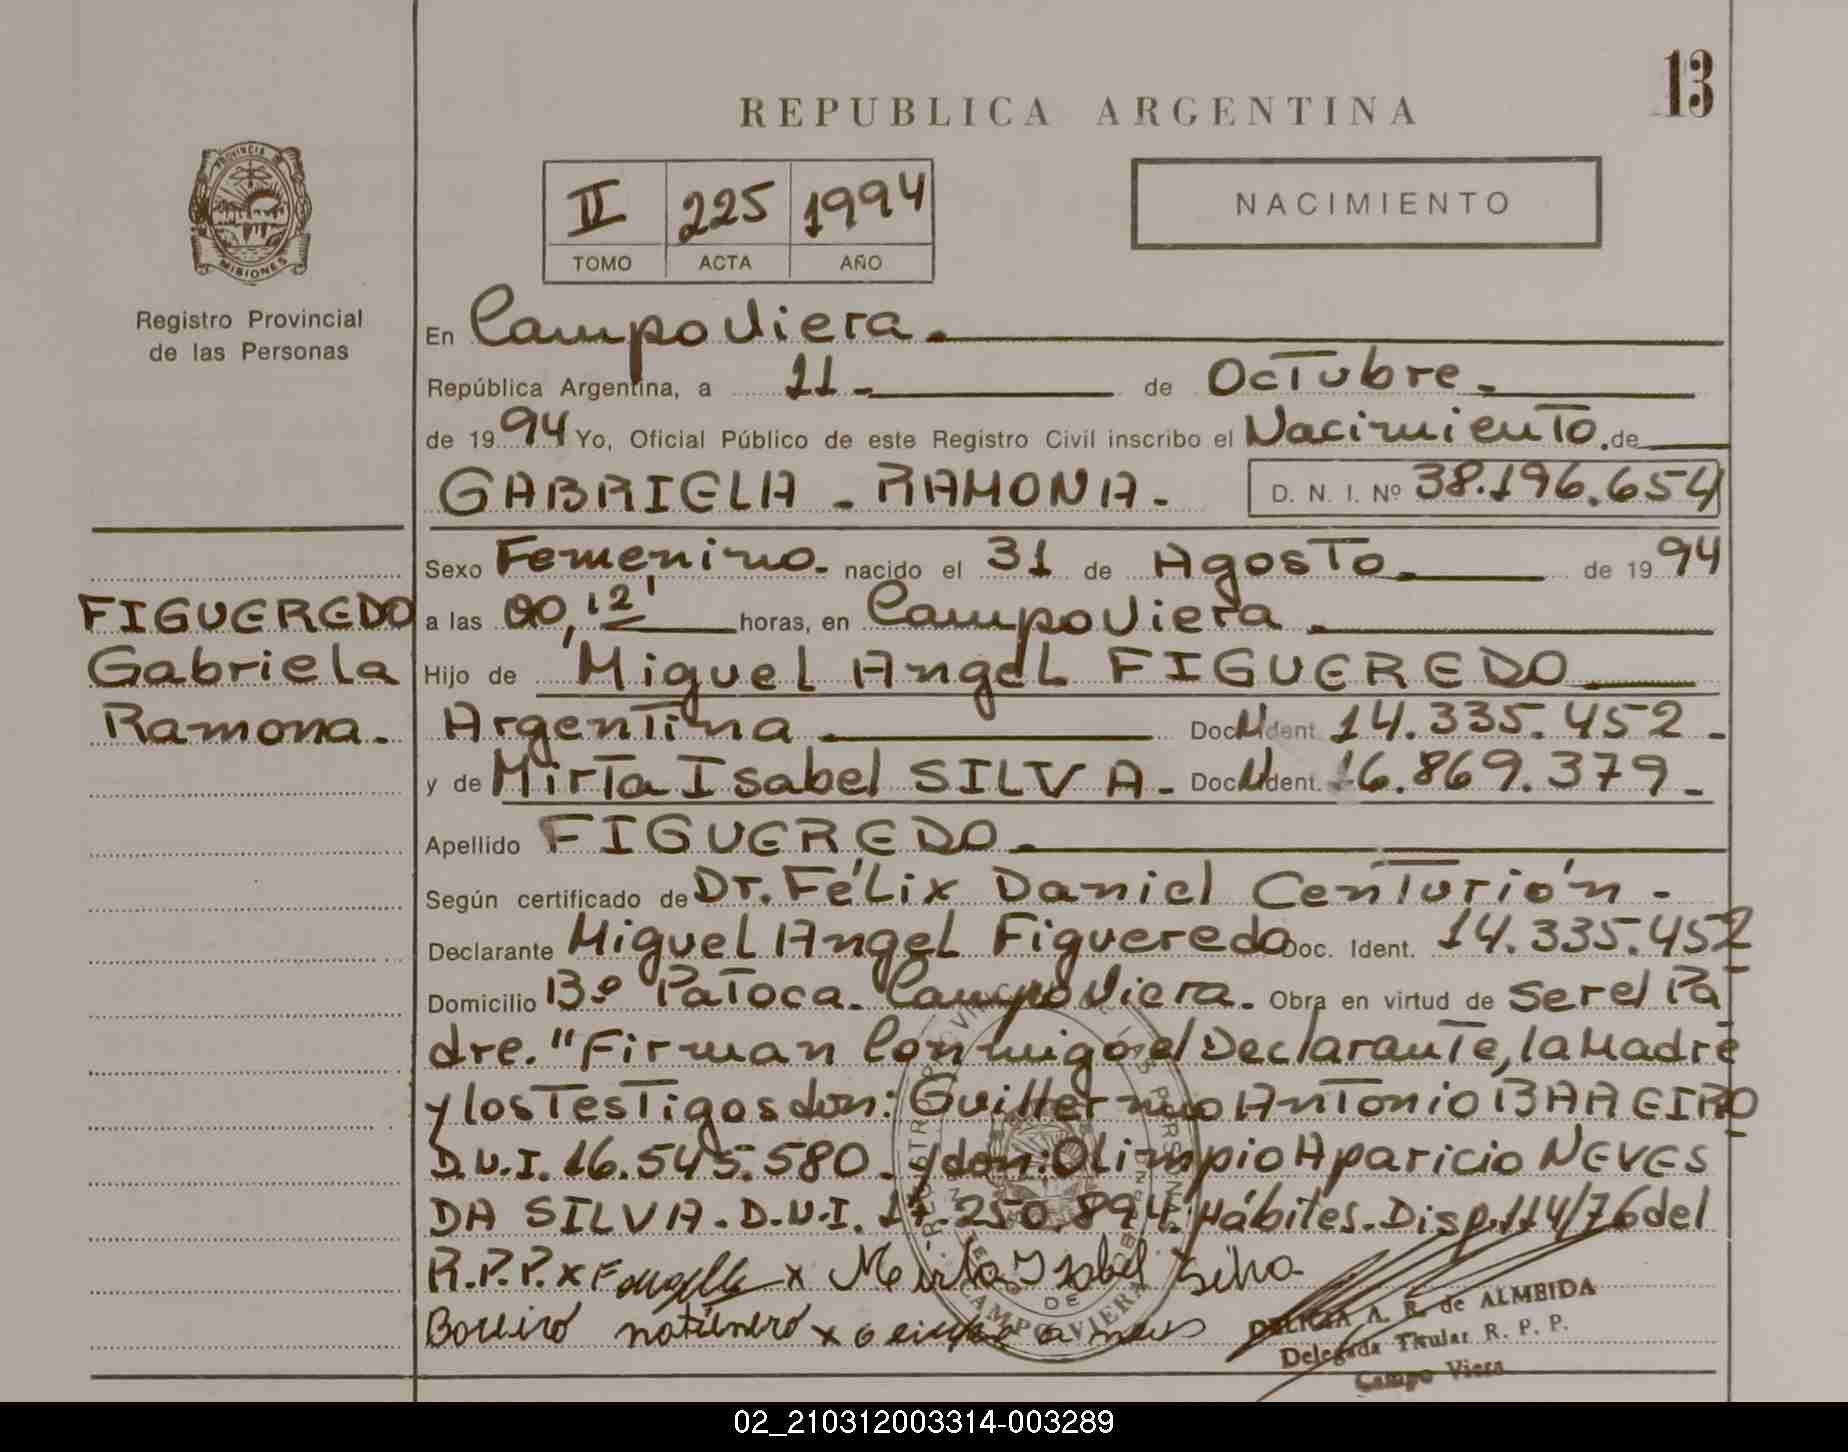 13
REPUBLICA ARGENTINA
PROVINCIA DE
MISIONES
II 225 1994
TOMO ACTA AÑO
NACIMIENTO
Registro Provincial
de las Personas
En Campo Viera.
República Argentina, a 11 - de Octubre.
de 1994 Yo, Oficial Público de este Registro Civil inscribo el Nacimiento. de
GABRIELA - RAMONA - D. N. I. Nº 38.196.654
Sexo Femenino. nacido el 31 de Agosto. de 1994
FIGUEREDO
Gabriela
Ramona.
a las 00,12' horas, en Campo Viera.
Hijo de Miguel Angel FIGUEREDO
Argentina Doc. Ident. 14.335.452 -
y de Mirta Isabel SILVA - Doc. Ident. 16.869.379 -
Apellido FIGUEREDO.
Según certificado de Dr. Félix Daniel Centurión -
Declarante Miguel Angel Figueredo Doc. Ident. 14.335.452
Domicilio Bº Patoca. Campo Viera. Obra en virtud de ser el Pa
dre. "Firman Conmigo el Declarante, la Madre
y los Testigos don: Guillermo Antonio BAREIRO
D.N.I. 16.545.580. y don: Olimpio Aparicio NEVES
DA SILVA. D.N.I. 17.250.894. Hábiles. Disp. 114/76 del
R.P.P. x x Mirta Ysabel Silva
x
DELICIA A. R. de ALMEIDA
Delegada Titular R. P. P.
Campo Viera
DE
CAMPO VIERA
02_210312003314-003289